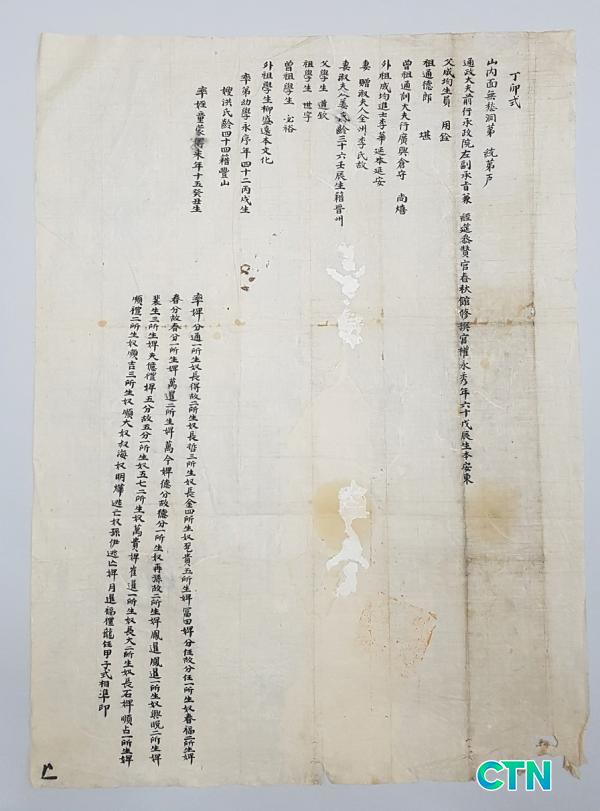 丁卯式
山內面無愁洞第 統第 戶
通政大夫前行承政院左副承旨兼 經筵參贊官春秋館修撰官權永秀年六十戊辰生本安東
父成均生員 用銓
祖通德郎 堪
曾祖通訓大夫行廣興倉守 尚熺
外祖成均進士李華延本延安
妻 贈淑夫人全州李氏故
妻淑夫人姜氏齡三十六壬辰生籍晉州
父學生 道欽
祖學生 世宇
曾祖學生 必裕
外祖學生柳盛遠本文化
率弟幼學永序年四十二丙戌生
嫂洪氏齡四十四籍豐山
率姪童蒙 來年十五癸丑生
率婢分通一所生奴長得故二所生奴長哲三所生奴長金四所生奴 貴五所生婢富田婢分任故分任一所生奴春福二所生婢
春分故春分一所生婢萬還二所生婢萬今婢德分故德分一所生奴再孫故二所生婢鳳還鳳還一所生奴興晛二所生婢
裴生三所生婢天德禮婢五分故五分一所生奴五七二所生奴萬貴婢崔進一所生奴長大二所生奴長石婢順占一所生婢
順禮二所生奴順吉三所生奴順大奴叔海奴明燁逃亡奴孫伊逃亡婢月進福禮龍任甲子式相準印
CTN